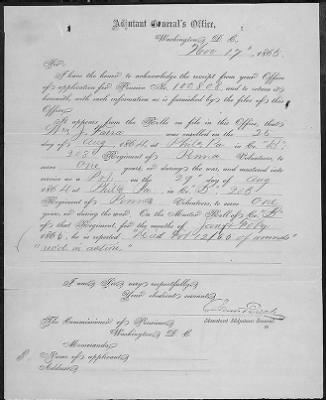 Adjutant General's Office,
Washington, D. C.
Nov 17", 1865.
Sir:
I have the honor to acknowledge the receipt from your Office
of application for Pension No. 100808, and to return it
herewith, with such information as is furnished by the files of this
Office.
It appears from the Rolls on file in this Office, that
Wm J. was enrolled on the 26
day of Aug, 1864, at Phila Pa in Co. "D"
203 Regiment of Penna Volunteers, to serve
One years, or during the war, and mustered into
service as a on the 29" day of Aug
1864, at Phila Pa in Co. "D" 203
Regiment of Penna Volunteers, to serve One
years, or during the war. On the Muster Roll of Co. "D"
of that Regiment for the months of Jan & Feby,
1865, he is reported "Died Feb 12/65 of wounds"
"recd in action."
I am, Sir, very respectfully,
Your obedient servant,
Assistant Adjutant General.
The Commissioner of Pensions,
Washington, D. C.
Memoranda.
Name of applicant,
Address,